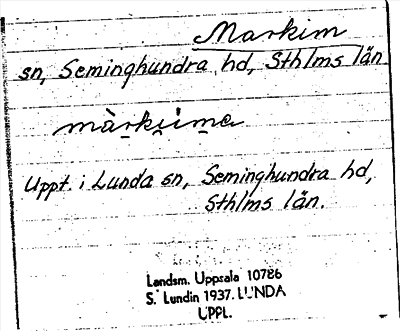 Markim
sn, Seminghundra hd, Sthlms län
mà̱rk̯i̱me
Uppt. i Lunda sn, Seminghundra hd,
Sthlms län.
Landsm. Uppsala 10786
S. Lundin 1937. LUNDA
UPPL.